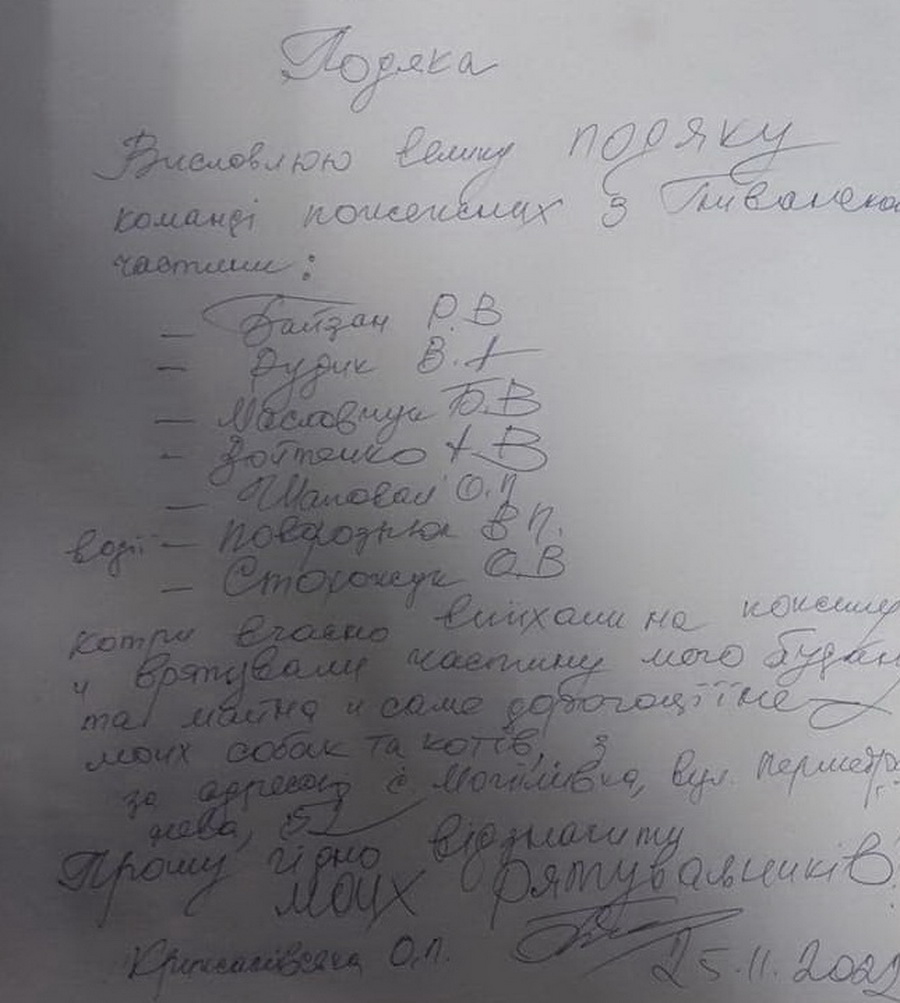 Подяка
Висловлюю велику подяку
команді пожежних з Гніванско
частини:
– Байзан Р.В
– Рудик В.А
– Масловчук Б.В
– Войтенко А В
– Шаповал О.П
водії – Поворознюк В П.
– Сторожук О.В
котри вчасно виїхали на пожежу
и врятували частину мого будин
та майна и саме дорогоцїїне
моих собак та котів, з
за адресою с. Могілівка, вул.
нева,
Прошу гідно відзначити
моих рятувальників!
О.П. 25.11.2022